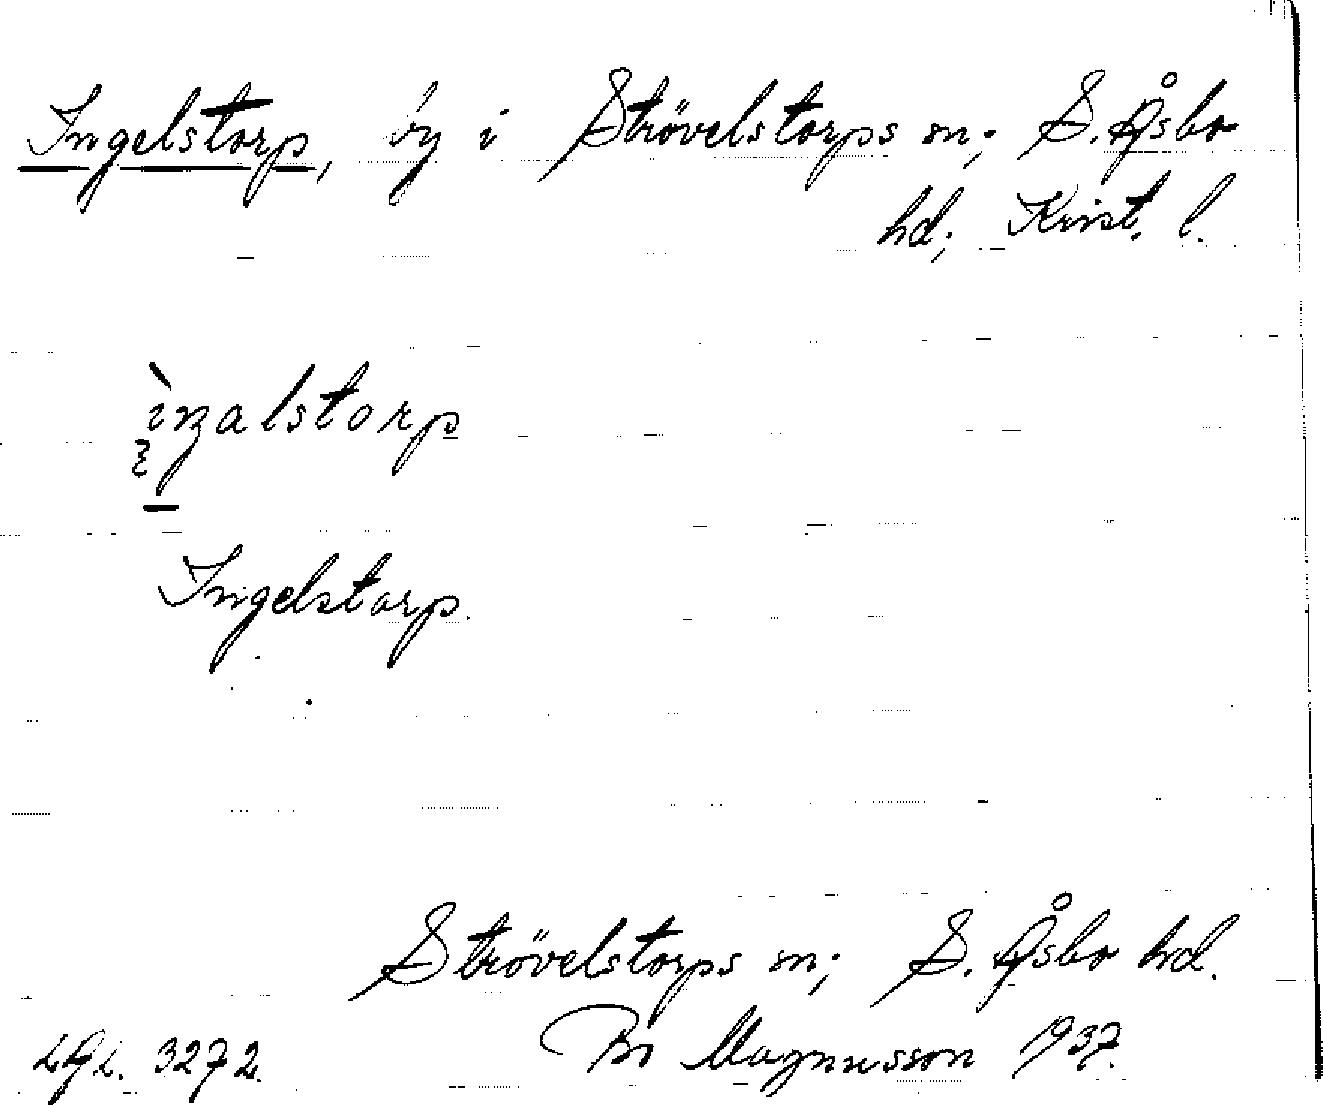 Ingelstorp, by i Strövelstorps sn; S. Åsbo
hd; Krist. l.
ìŋalstorp
Ingelstorp.
Strövelstorps sn; S. Åsbo hd.
LAL. 3272. Bri Magnusson 1937.